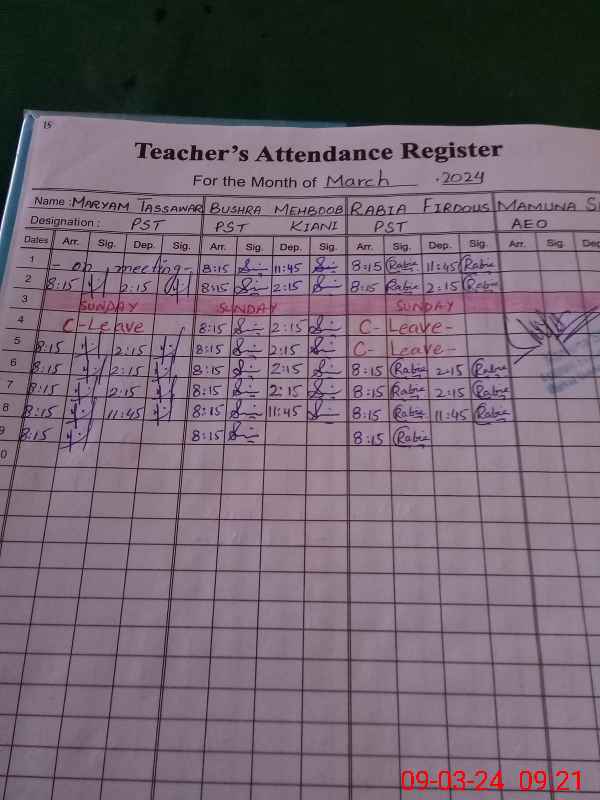 15
Teacher's Attendance Register
For the Month of March .2024
Name : MARYAM TASSAWAR BUSHRA MEHBOOB RABIA FIRDOUS MAMUNA
Designation : PST PST KIANI PST AEO
Dates Arr. Sig. Dep. Sig. Arr. Sig. Dep. Sig. Arr. Sig. Dep. Sig. Arr. Sig. Dep
1 - on meeting - 8:15 11:45 8:15 Rabia 11:45 Rabia
2 8:15 2:15 8:15 2:15 8:15 Rabia 2:15 Rabia
3 SUNDAY SUNDAY SUNDAY
4 C-Leave 8:15 2:15 C- Leave-
5 8:15 2:15 8:15 2:15 C- Leave-
6 8:15 2:15 8:15 2:15 8:15 Rabia 2:15 Rabia
7 8:15 2:15 8:15 2:15 8:15 Rabia 2:15 Rabia
8 8:15 11:45 8:15 11:45 8:15 Rabia 11:45 Rabia
9 8:15 8:15 8:15 Rabia
0
09-03-24 09:21